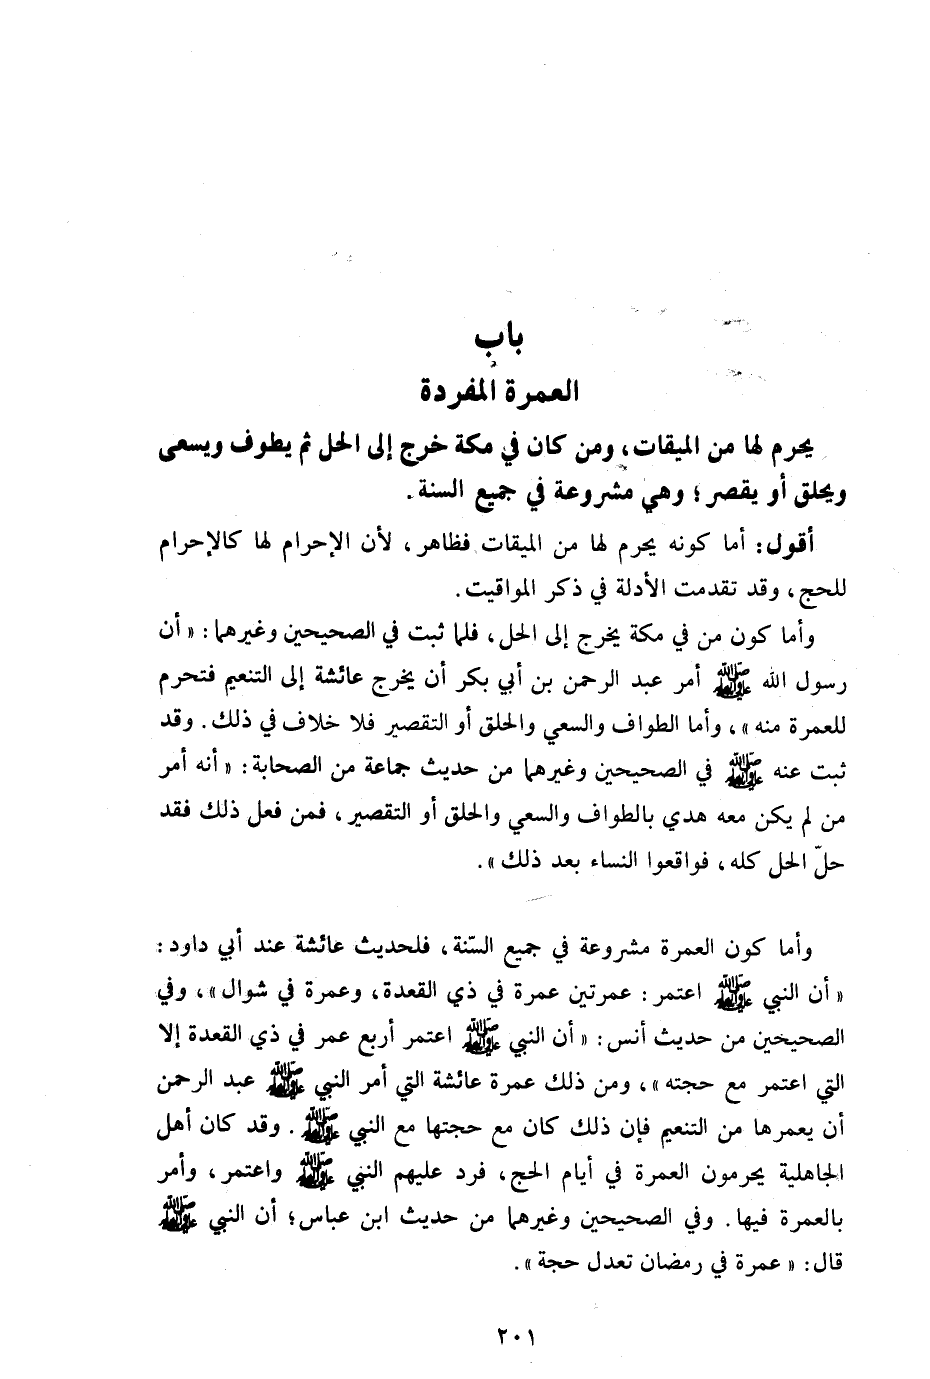 باب
العمرة المفردة
يحرم لها من الميقات، ومن كان في مكة خرج إلى الحل ثم يطوف ويسعى
ويحلق أو يقصر؛ وهي مشروعة في جميع السنة.
أقول: أما كونه يحرم لها من الميقات فظاهر، لأن الإحرام لها كالإحرام
للحج، وقد تقدمت الأدلة في ذكر المواقيت.
وأما كون من في مكة يخرج إلى الحل، فلما ثبت في الصحيحين وغيرهما: « أن
رسول الله ﷺ أمر عبد الرحمن بن أبي بكر أن يخرج عائشة إلى التنعيم فتحرم
للعمرة منه »، وأما الطواف والسعي والحلق أو التقصير فلا خلاف في ذلك. وقد
ثبت عنه ﷺ في الصحيحين وغيرهما من حديث جماعة من الصحابة: « أنه أمر
من لم يكن معه هدي بالطواف والسعي والحلق أو التقصير، فمن فعل ذلك فقد
حلّ الحل كله، فواقعوا النساء بعد ذلك ».
وأما كون العمرة مشروعة في جميع السّنة، فلحديث عائشة عند أبي داود:
« أن النبي ﷺ اعتمر: عمرتين عمرة في ذي القعدة، وعمرة في شوال »، وفي
الصحيحين من حديث أنس: « أن النبي ﷺ اعتمر أربع عمر في ذي القعدة إلا
التي اعتمر مع حجته »، ومن ذلك عمرة عائشة التي أمر النبي ﷺ عبد الرحمن
أن يعمرها من التنعيم فإن ذلك كان مع حجتها مع النبي ﷺ. وقد كان أهل
الجاهلية يحرمون العمرة في أيام الحج، فرد عليهم النبي ﷺ واعتمر، وأمر
بالعمرة فيها. وفي الصحيحين وغيرهما من حديث ابن عباس؛ أن النبي ﷺ
قال: « عمرة في رمضان تعدل حجة ».
٢٠١